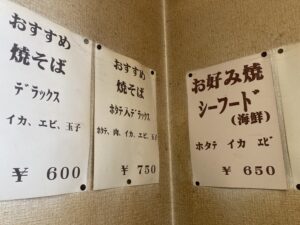 おすすめ
焼そば
デラックス
イカ、エビ、玉子
￥ 600
おすすめ
焼そば
ホタテ入デラックス
ホタテ、肉、イカ、エビ、玉子
￥ 750
お好み焼
シーフード
(海鮮)
ホタテ イカ エビ
￥ 650